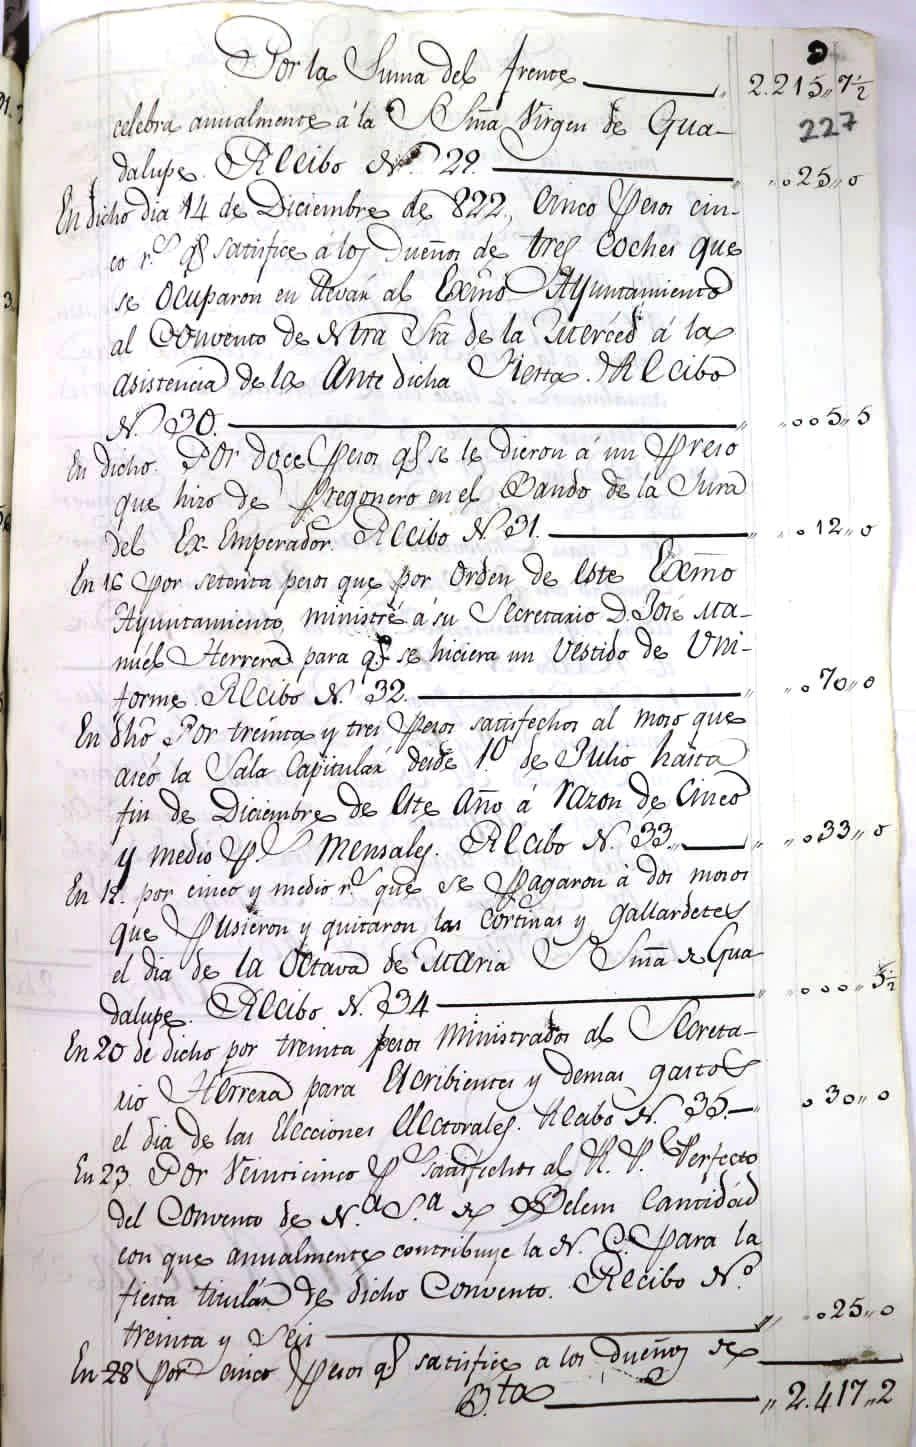 9
Por la Suma del frente 2.215,,7½
227
celebra anualmente á la SSm̃a Virgen de Gua-
dalupe. Recibo Nº. 29. ,, ,,025,,0
En dicho dia 14 de Diciembre de 822., Cinco Pesos cin-
co r.s q.e satisfice á los Dueños de tres Coches que
se Ocuparon en llevár al Exm̃o Ayuntamiento
al Convento de Ntra Sr̃a de la Merced á la
asistencia de la Ante dicha Fiesta. Recibo
N. 30. ,, ,,005,,5
En dicho. Por doce Pesos q.e se le dieron á un Preso
que hizo de Pregonero en el Bando de la Jura
del Ex-Emperador. Recibo N. 31. ,, ,,012,,0
En 16 por setenta pesos que por Orden de este Exm̃o
Ayuntamiento, ministré á su Secretario D. José Ma-
nuél Herrera para q.e se hiciera un Vestido de Uni-
forme. Recibo N. 32. ,, ,,070,,0
En dhõ Por treinta y tres Pesos satisfechos al moso que
aséo la Sala Capitulár desde 1.º de Julio hasta
fin de Diciembre de este Año á razon de Cinco
y medio p.s mensales. Recibo N. 33. ,, ,,033,,0
En 18. por cinco y medio r.s que se Pagaron á dos mosos
que Pusieron y quitaron las Cortinas y gallardetes
el dia de la Octava de Maria SSm̃a de Gua
dalupe. Recibo N. 34 ,, ,,000,,5½
En 20 de dicho por treinta pesos Ministrados al Secreta-
rio Herrera para Escribientes y demas gastos
el dia de las Elecciones Electorales. Recibo N. 35. ,, 030,,0
En 23. Por Veinticinco p.s satisfechos al R. P. Perfecto
del Convento de N.a S.a de Belem Cantidád
con que anualmente contribuye la N. C. Para la
fiesta titulár de dicho Convento. Recibo N.º
treinta y Seis ,, ,,025,,0
En 28 Por cinco Pesos q.e satisfice a los dueños de
B.ta ,, 2.417,,2